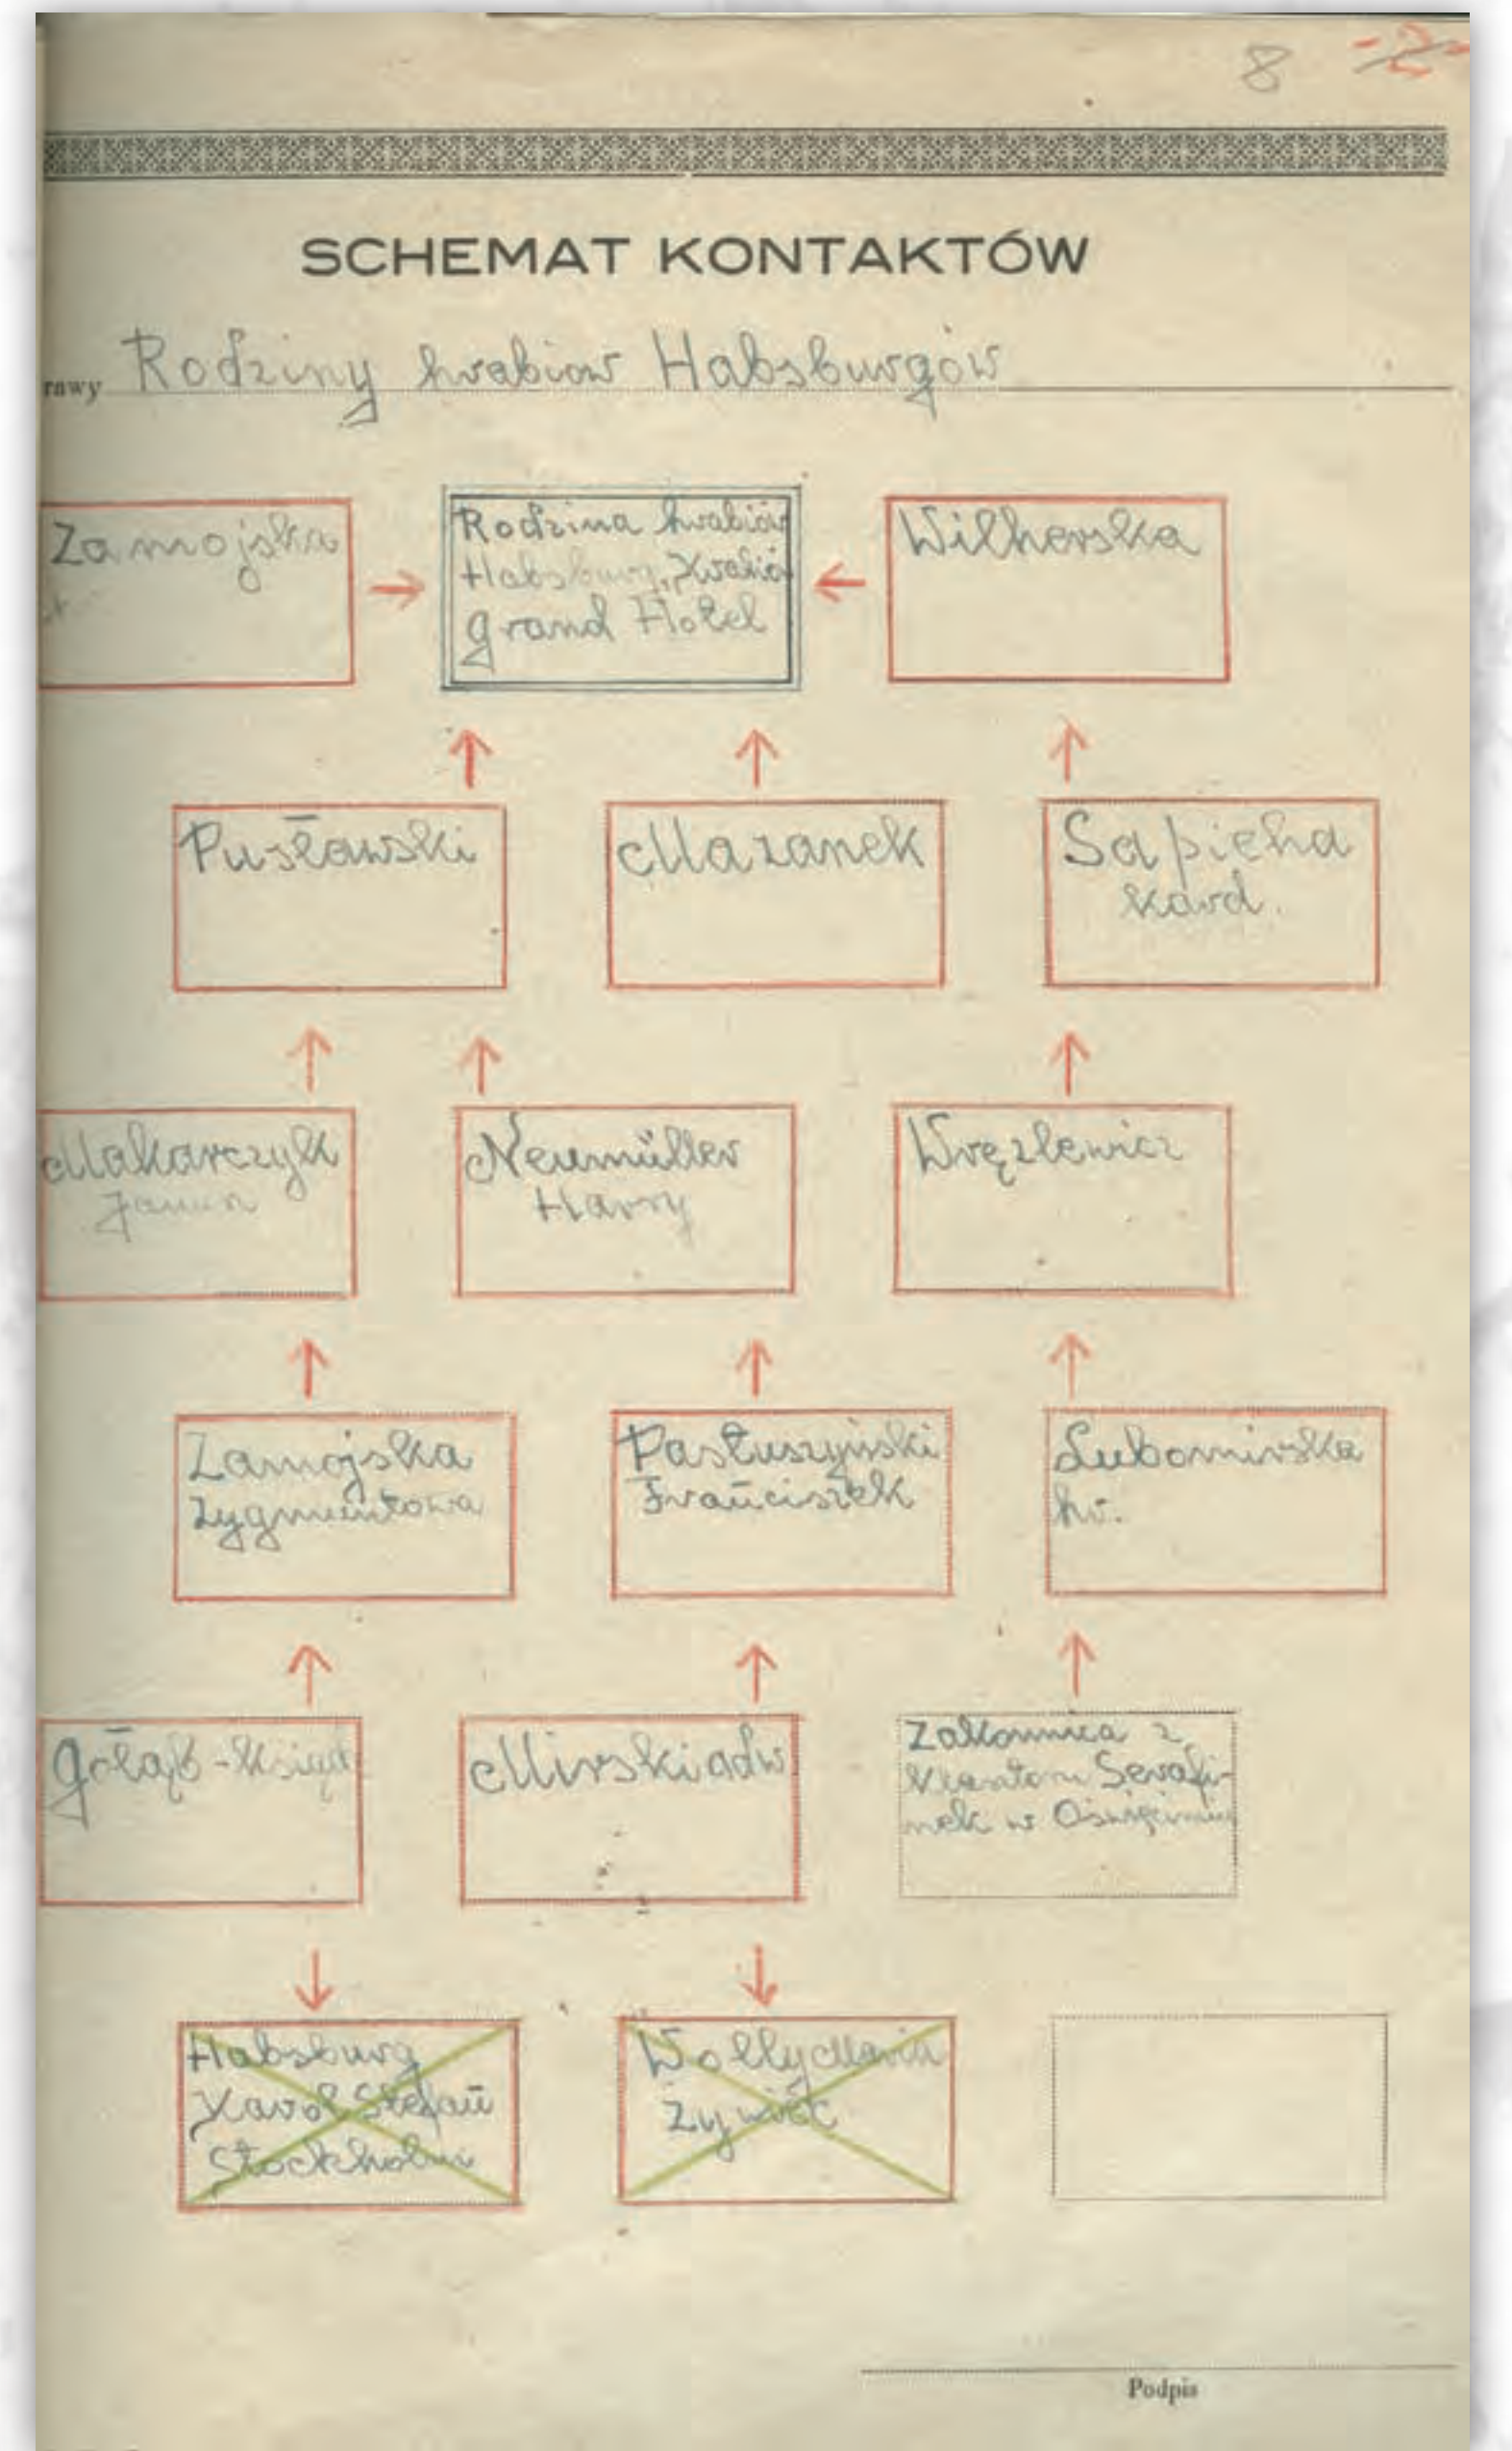 8 -2-
SCHEMAT KONTAKTÓW
rawy Rodziny hrabiow Habsburgów
Zamojska
Rodzina hrabiów
Habsburg,
Grand Hotel
Wilherska
Pusławski
Mazanek
Sapieha
kard.
Makarczyk
Janusz
Neumüller
Harry
Wręzlewicz
Zamojska
Zygmuntowa
Pastuszyński
Franciszek
Lubomirska
hr.
Gołąb-Ksiądz
Mirski adw
Zakonnica z
Klasztoru Serafi-
nek w Oświęcimiu
Habsburg
Karol Stefan
Stockholm
Wolly Maria
Żywiec
Podpis